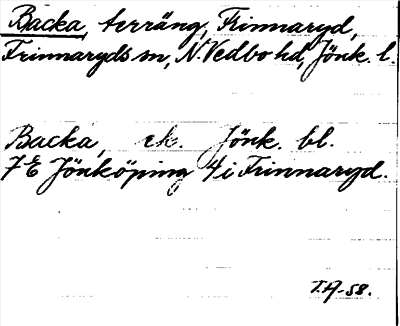 Backa, terräng, Frinnaryd,
Frinnaryds sn, N. Vedbo hd, Jönk. l.
Backa, ek. Jönk. bl.
7 E Jönköping 4 i Frinnaryd.
T.A-58.